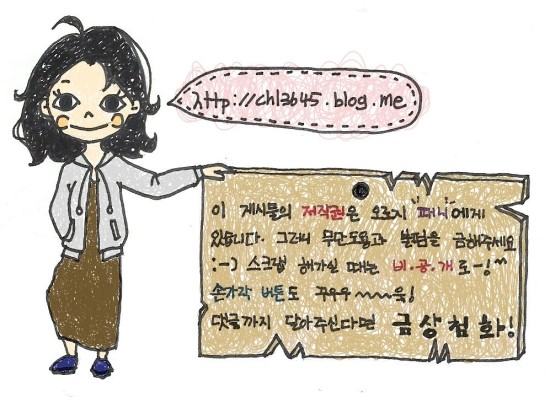 http://chl2645.blog.me
이 게시물의 저작권은 오로지 "퍼니"에게
있습니다. 그러니 무단도용과 불펌을 금해주세요
:-) 스크랩 해가실 때는 비.공.개 로~!^^
손가락 버튼도 꾸우우~~~욱!
댓글까지 달아주신다면 금상첨화!